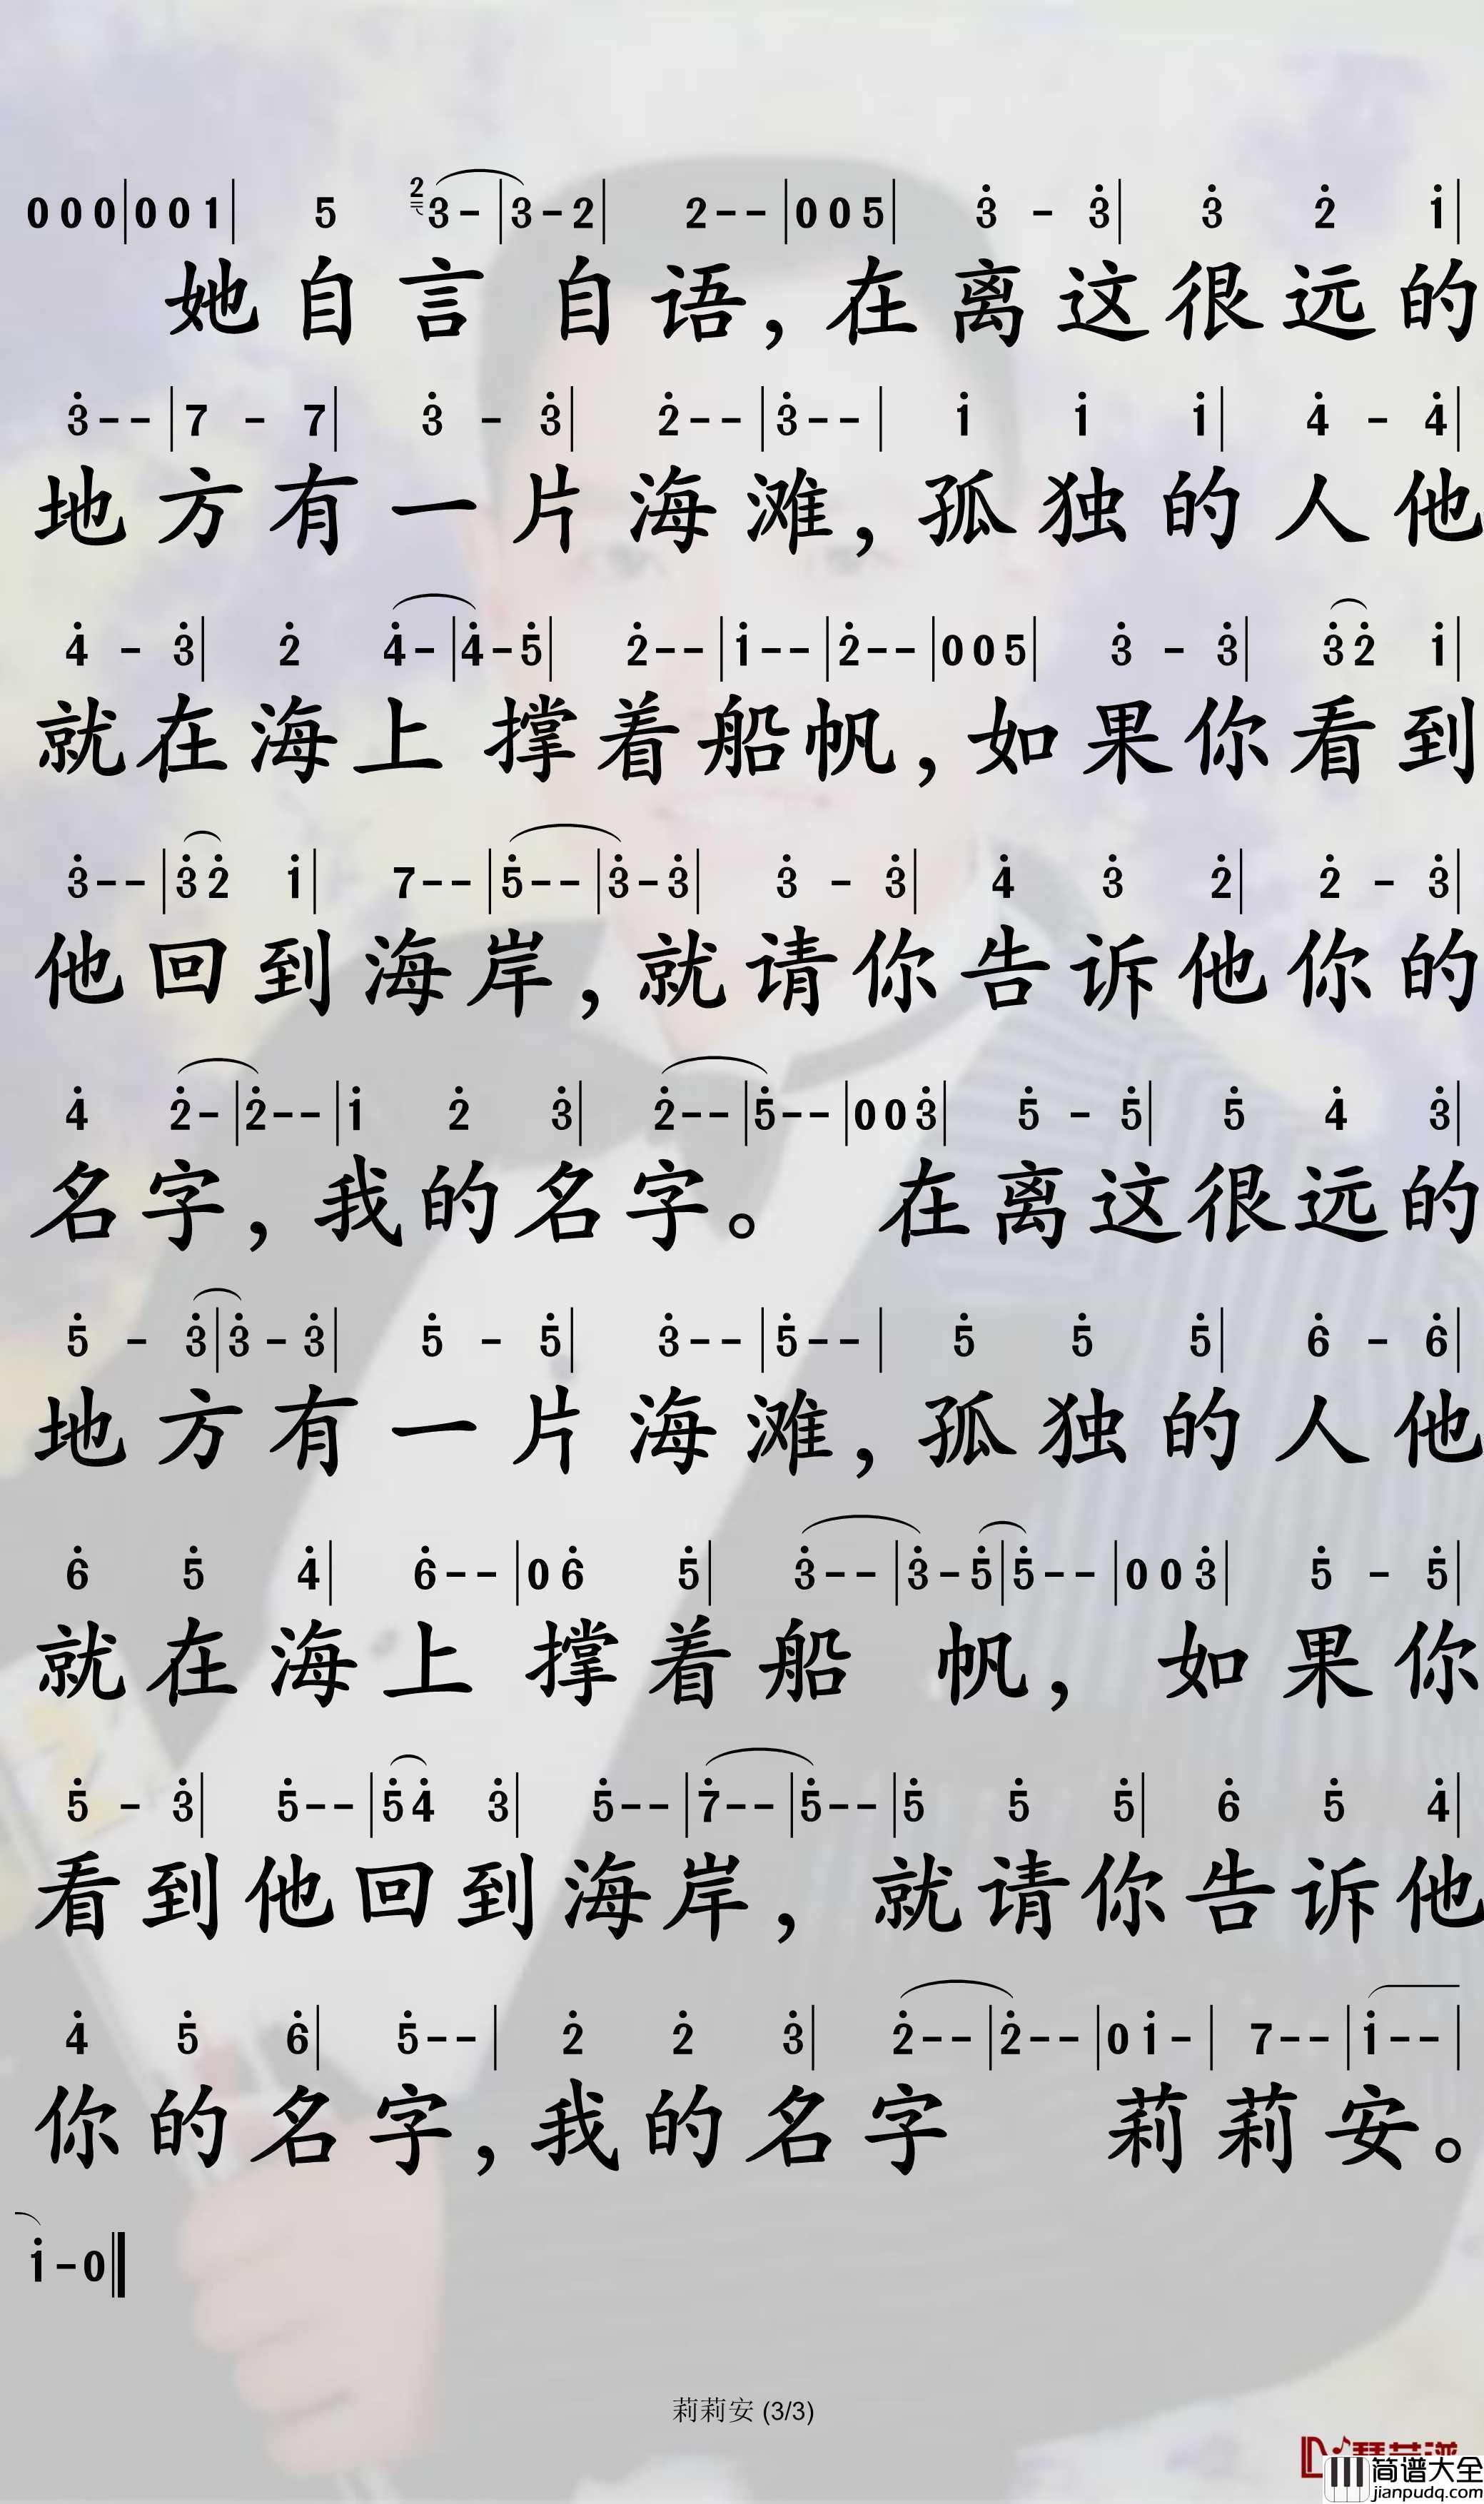 000|001| 5 2 3-|3-2| 2--|005| 3 - 3| 3 2 1|
她自言自语,在离这很远的
3--|7 - 7| 3 - 3| 2--|3--| 1 1 1| 4 - 4|
地方有一片海滩,孤独的人他
4 - 3| 2 4-|4-5| 2--|1--|2--|005| 3 - 3| 32 1|
就在海上撑着船帆,如果你看到
3--|32 1| 7--|5--|3-3| 3 - 3| 4 3 2| 2 - 3|
他回到海岸,就请你告诉他你的
4 2-|2--|1 2 3| 2--|5--|003| 5 - 5| 5 4 3|
名字,我的名字。在离这很远的
5 - 3|3-3| 5 - 5| 3--|5--| 5 5 5| 6 - 6|
地方有一片海滩,孤独的人他
6 5 4| 6--|06 5| 3--|3-5|5--|003| 5 - 5|
就在海上撑着船帆,如果你
5 - 3| 5--|54 3| 5--|7--|5--|5 5 5| 6 5 4|
看到他回到海岸,就请你告诉他
4 5 6| 5--| 2 2 3| 2--|2--|01-| 7--|1--|
你的名字,我的名字 莉莉安。
1-0‖
莉莉安 (3/3)
简谱大全
jianpudq.com